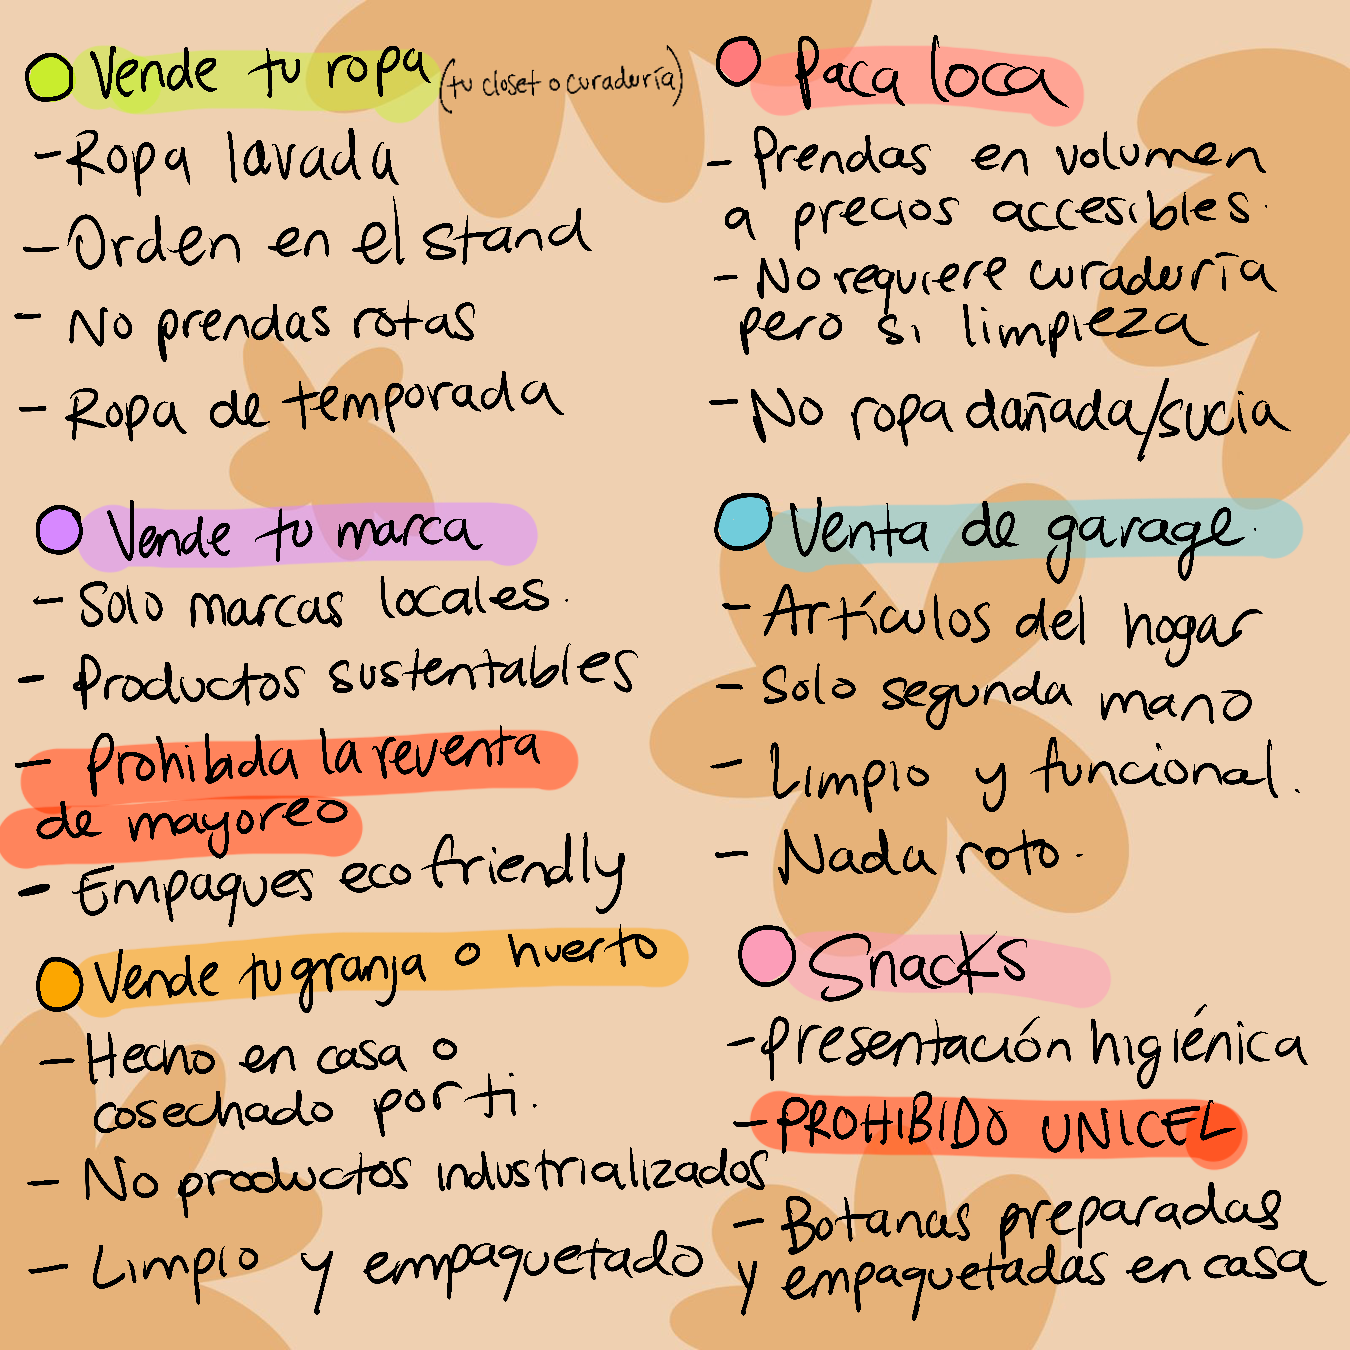 Vende tu ropa (tu closet o curaduría)
- Ropa lavada
- Orden en el stand
- No prendas rotas
- Ropa de temporada
Vende tu marca
- Solo marcas locales.
- Productos sustentables
- Prohibida la reventa
de mayoreo
- Empaques eco friendly
Vende tu granja o huerto
- Hecho en casa o
cosechado por ti.
- No productos industrializados
- Limpio y empaquetado
Paca loca
- Prendas en volumen
a precios accesibles.
- No requiere curaduría
pero si limpieza
- No ropa dañada/sucia
Venta de garage.
- Artículos del hogar
- Solo segunda mano
- Limpio y funcional.
- Nada roto.
Snacks
- Presentación higiénica
- PROHIBIDO UNICEL
- Botanas preparadas
y empaquetadas en casa